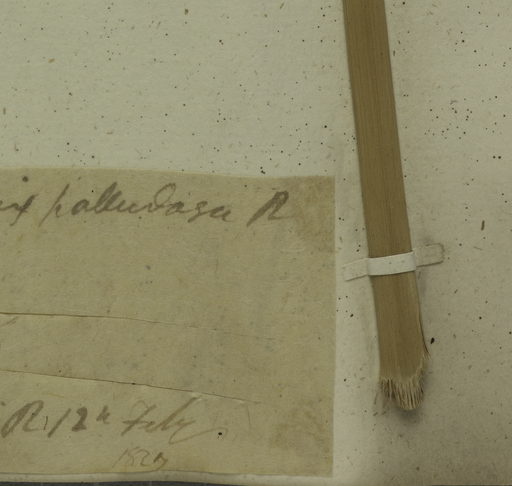 ix palludosa R
R. 12th Feby
1827